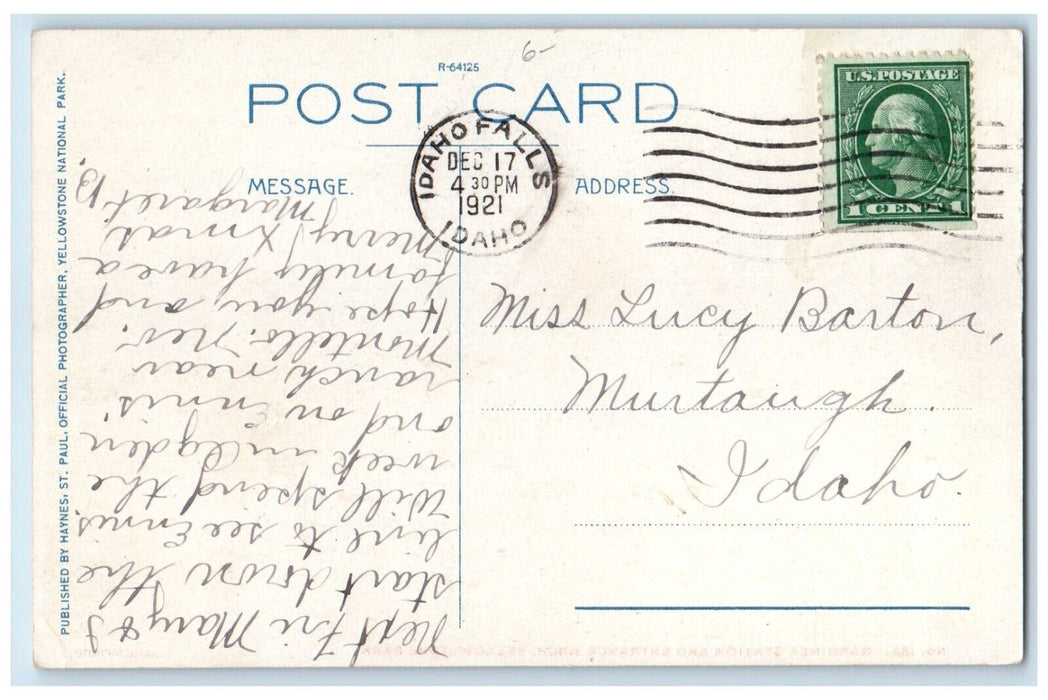 R-64125
6-
POST CARD
MESSAGE.
ADDRESS.
IDAHO FALLS
DEC 17
4 30 PM
1921
IDAHO
U.S. POSTAGE
1 CENT 1
Miss Lucy Barton,
Murtaugh.
Idaho.
Next Fri Mary & I
start down the
line to see Ennis.
Will spend the
week in Ogden
and on Ennis'
ranch near
Montello. Nev.
Hope you and
family have a
Merry Xmas
Margaret B.
PUBLISHED BY HAYNES, ST. PAUL, OFFICIAL PHOTOGRAPHER, YELLOWSTONE NATIONAL PARK.